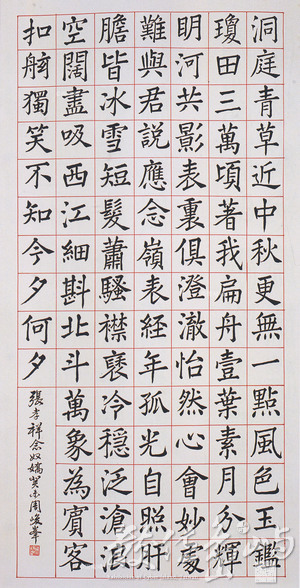 洞庭青草近中秋更無一點風色玉鑑
瓊田三萬頃著我扁舟壹葉素月分輝
眀河共影表裏俱澄澈怡然心會妙處
難與君說應念嶺表経年孤光自照肝
膽皆冰雪短髮蕭騷襟褎冷穩泛滄浪
空闊盡吸西江細斟北斗萬象為賓客
扣舷獨笑不知今夕何夕
張孝祥念奴嬌 周峻峯